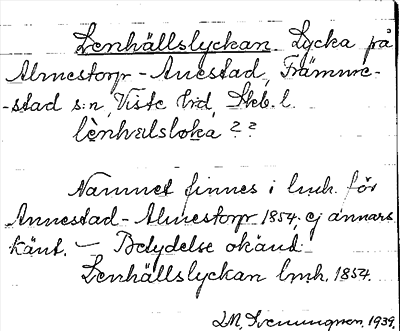 Lenhällslyckan. Lycka på
Almestorp - Anestad, Främme-
-stad s:n, Viste hd, Skb. l.
lènhælsløka ??
Namnet finnes i lmh. för
Annestad - Almestorp 1854, ej annars
känt. — Betydelse okänd.
Lenhällslyckan lmh. 1854.
1939.